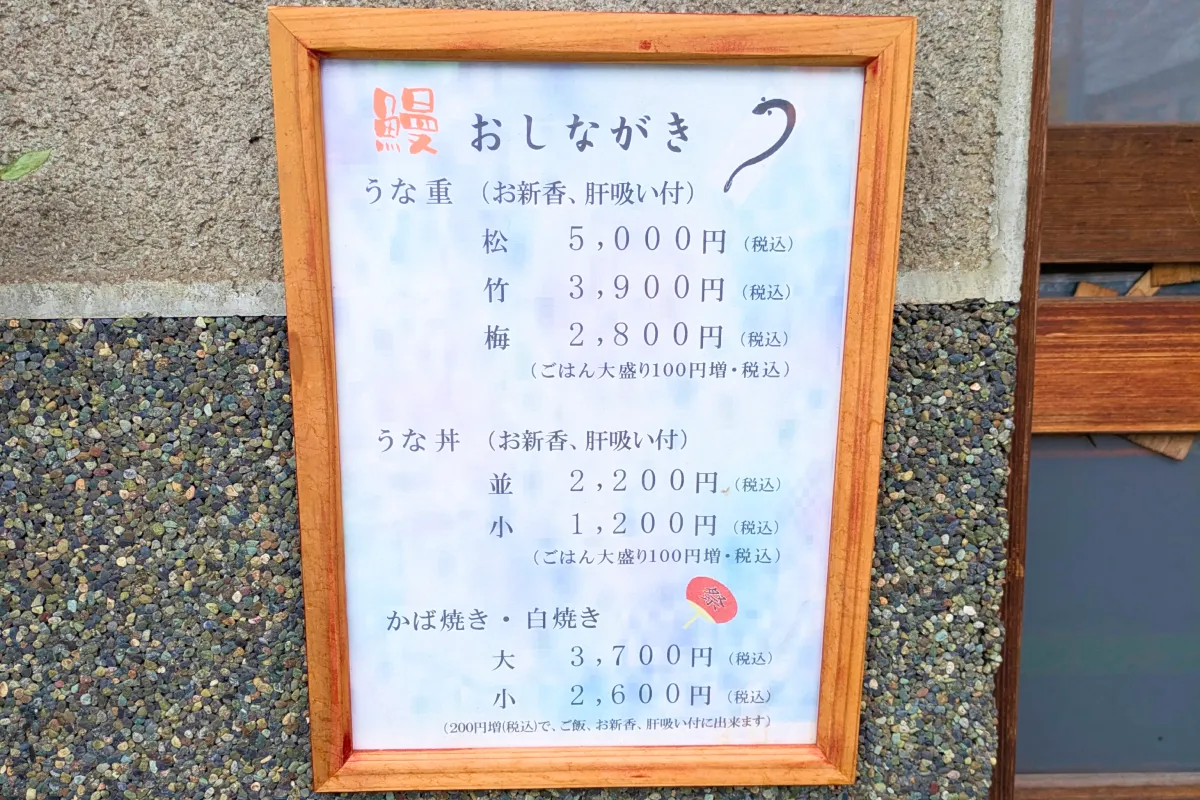 鰻 おしながき
うな重 （お新香、肝吸い付）
松 5,000円（税込）
竹 3,900円（税込）
梅 2,800円（税込）
（ごはん大盛り100円増・税込）
うな丼 （お新香、肝吸い付）
並 2,200円（税込）
小 1,200円（税込）
（ごはん大盛り100円増・税込）
祭
かば焼き・白焼き
大 3,700円（税込）
小 2,600円（税込）
（200円増(税込)で、ご飯、お新香、肝吸い付に出来ます）